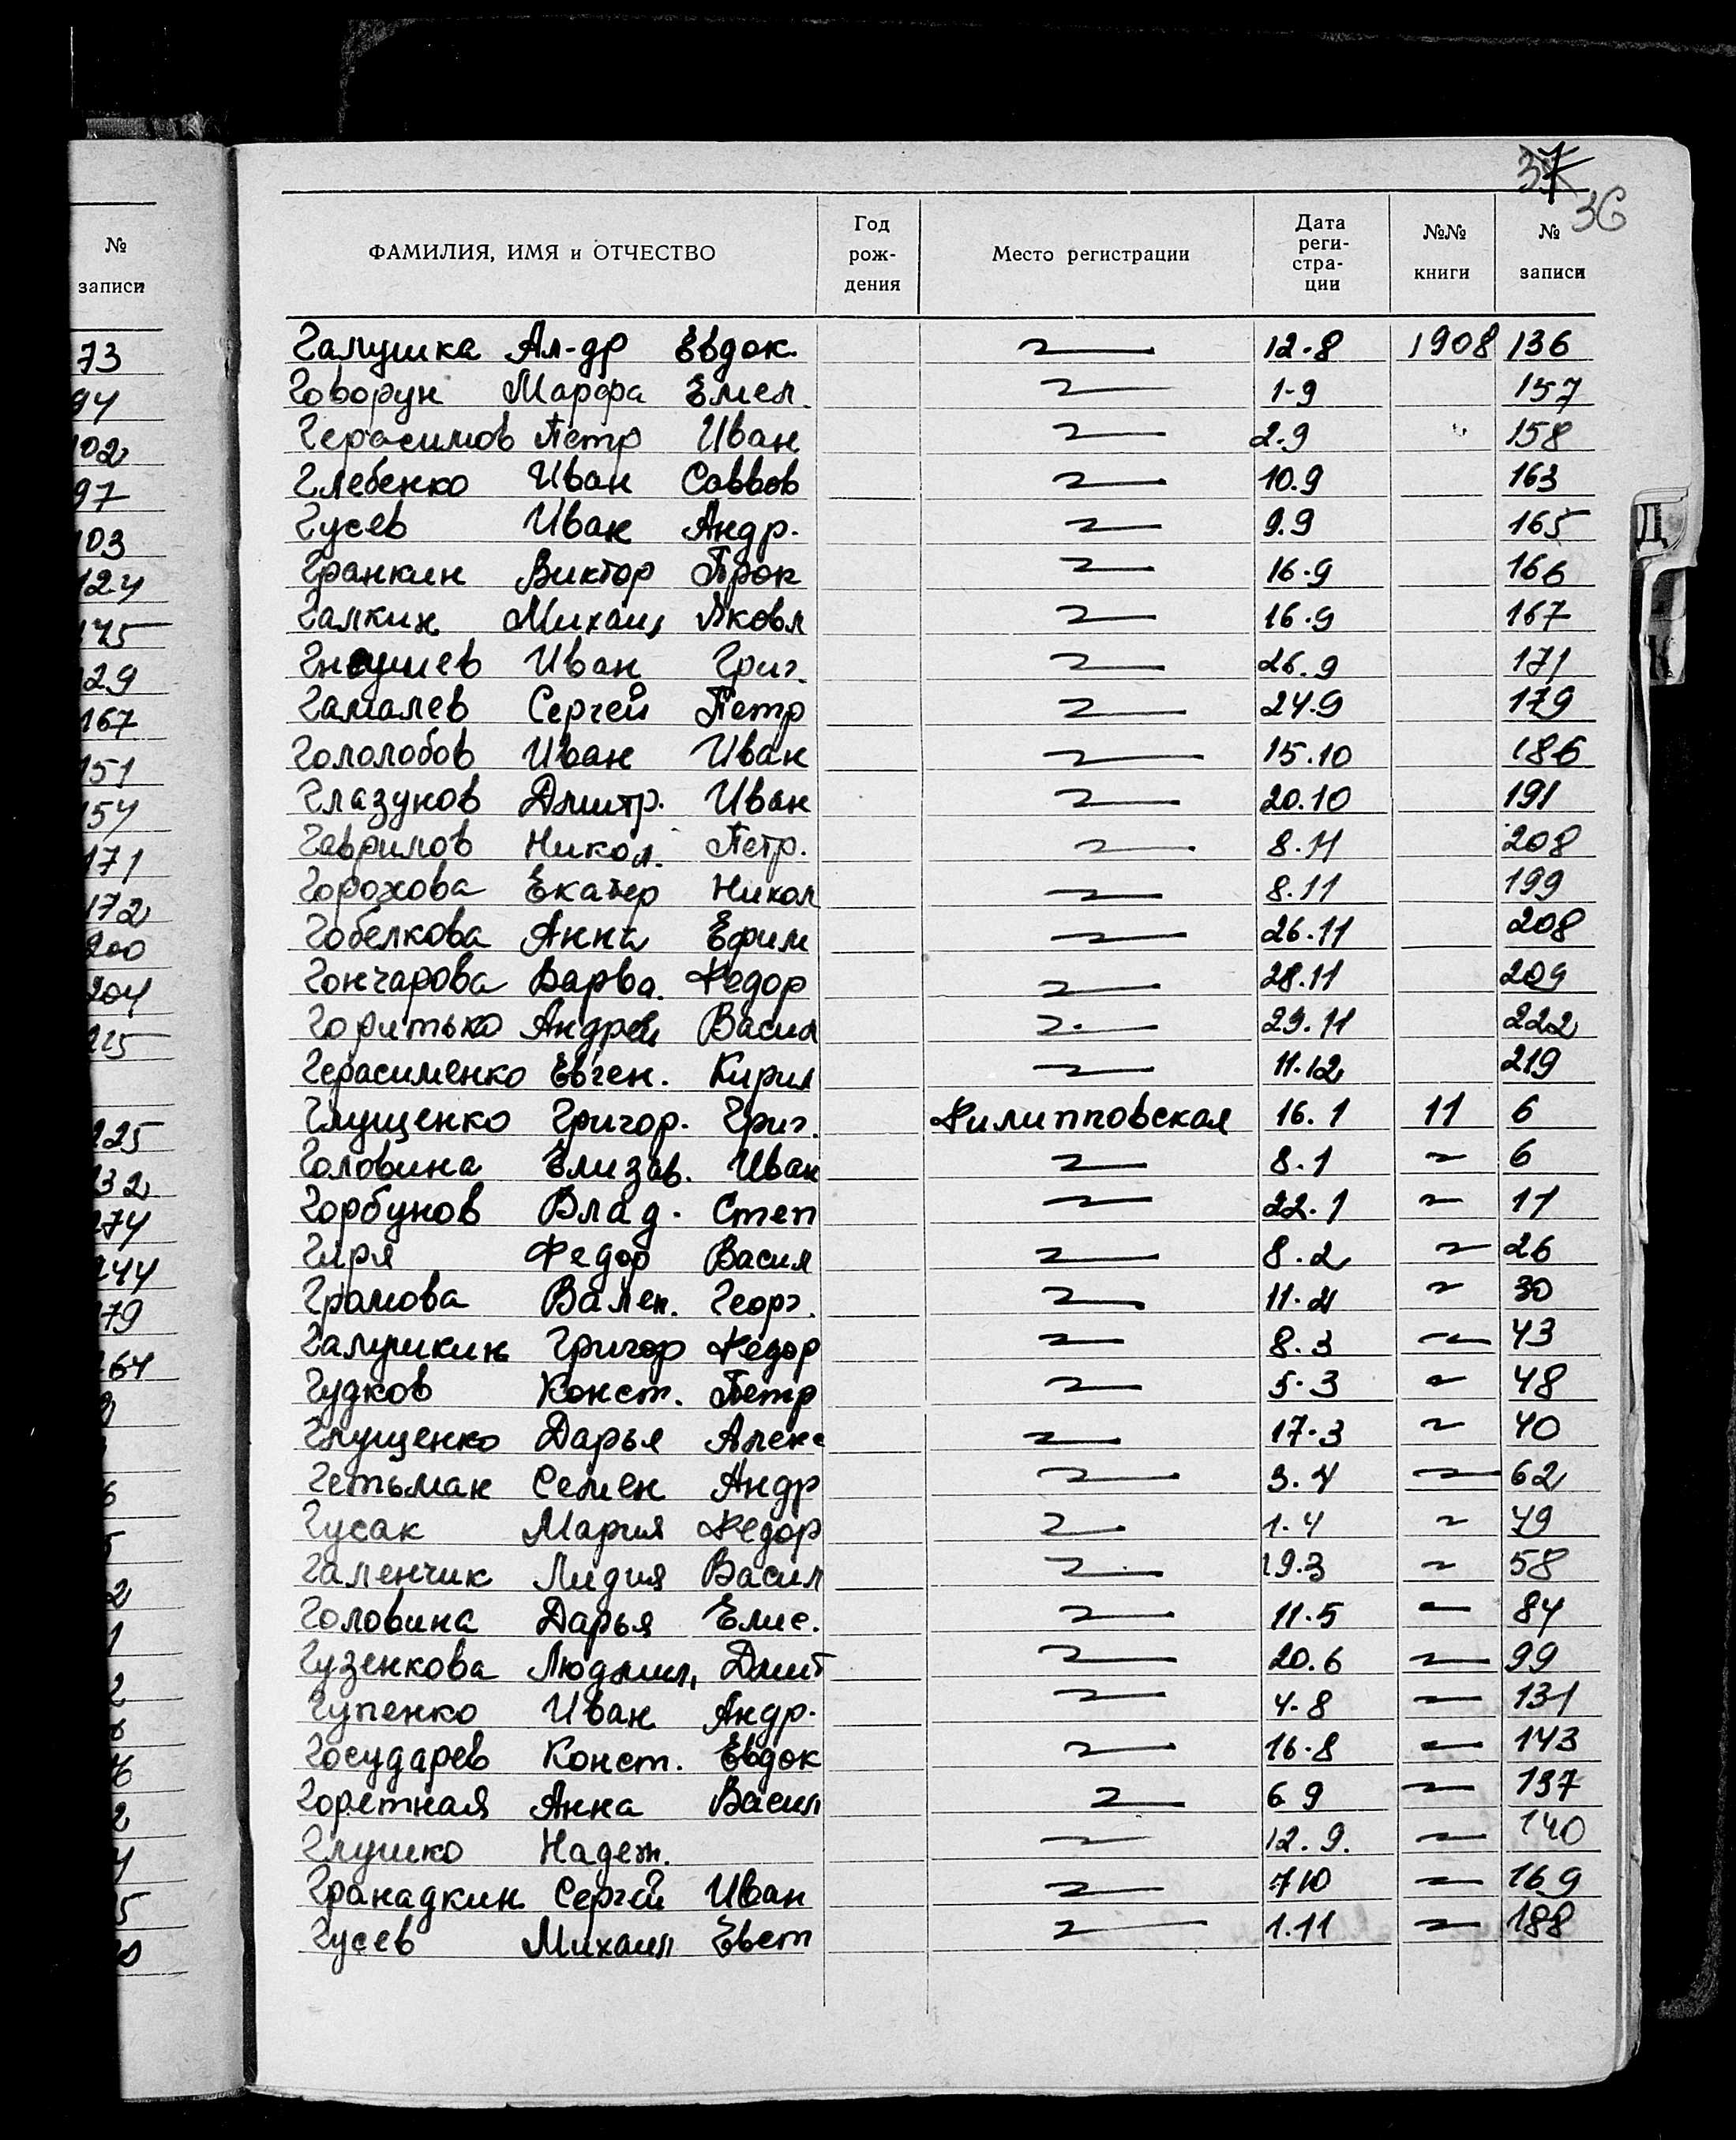 37
36
№ записи
ФАМИЛИЯ, ИМЯ и ОТЧЕСТВО Год рождения Место регистрации Дата регистрации №№ книги № записи
73
94
102
97
103
124
175
129
167
151
154
171
172
200
204
225
132
274
244
79
Галушка Ал-др Евдок. 12.8 1908 136
Говорун Марфа Емел. 1-9 157
Герасимов Петр Иван 2.9 158
Глебенко Иван Саввов 10.9 163
Гусев Иван Андр. 9.9 165
Гранкин Виктор Прок 16.9 166
Галкин Михаил Яковл 16.9 167
Иван Григ. 26.9 171
Гамалев Сергей Петр 24.9 179
Гололобов Иван Иван 15.10 186
Глазунов Дмитр. Иван 20.10 191
Гаврилов Никол. Петр. 8.11 208
Горохова Екатер Никол 8.11 199
Гобелкова Анна Ефим 26.11 208
Гончарова Варва. Федор 28.11 209
Горитько Андрей Васил 29.11 222
Герасименко Евген. Кирил 11.12 219
Глущенко Григор. Григ. Филипповская 16.1 11 6
Головина Елизав. Иван 8.1 6
Горбунов Влад. Степ 22.1 11
Гиря Федор Васил 8.2 26
Громова Вален. Георг. 11. 30
Галушкин Григор Федор 8.3 43
Гудков Конст. Петр 5.3 48
Глущенко Дарья Алекс 17.3 40
Гетьман Семен Андр 3.4 62
Гусак Мария Федор 1.4 49
Галенчик Лидия Васил 19.3 58
Головина Дарья Елис. 11.5 84
Гузенкова Людмил, Дмит 20.6 99
Гупенко Иван Андр. 4.8 131
Государев Конст. Евдок 16.8 143
Горетная Анна Васил 6 9 137
Глушко Надеж. 12.9. 140
Гранадкин Сергей Иван 7 10 169
Гусев Михаил Евст 1.11 188
Д
К